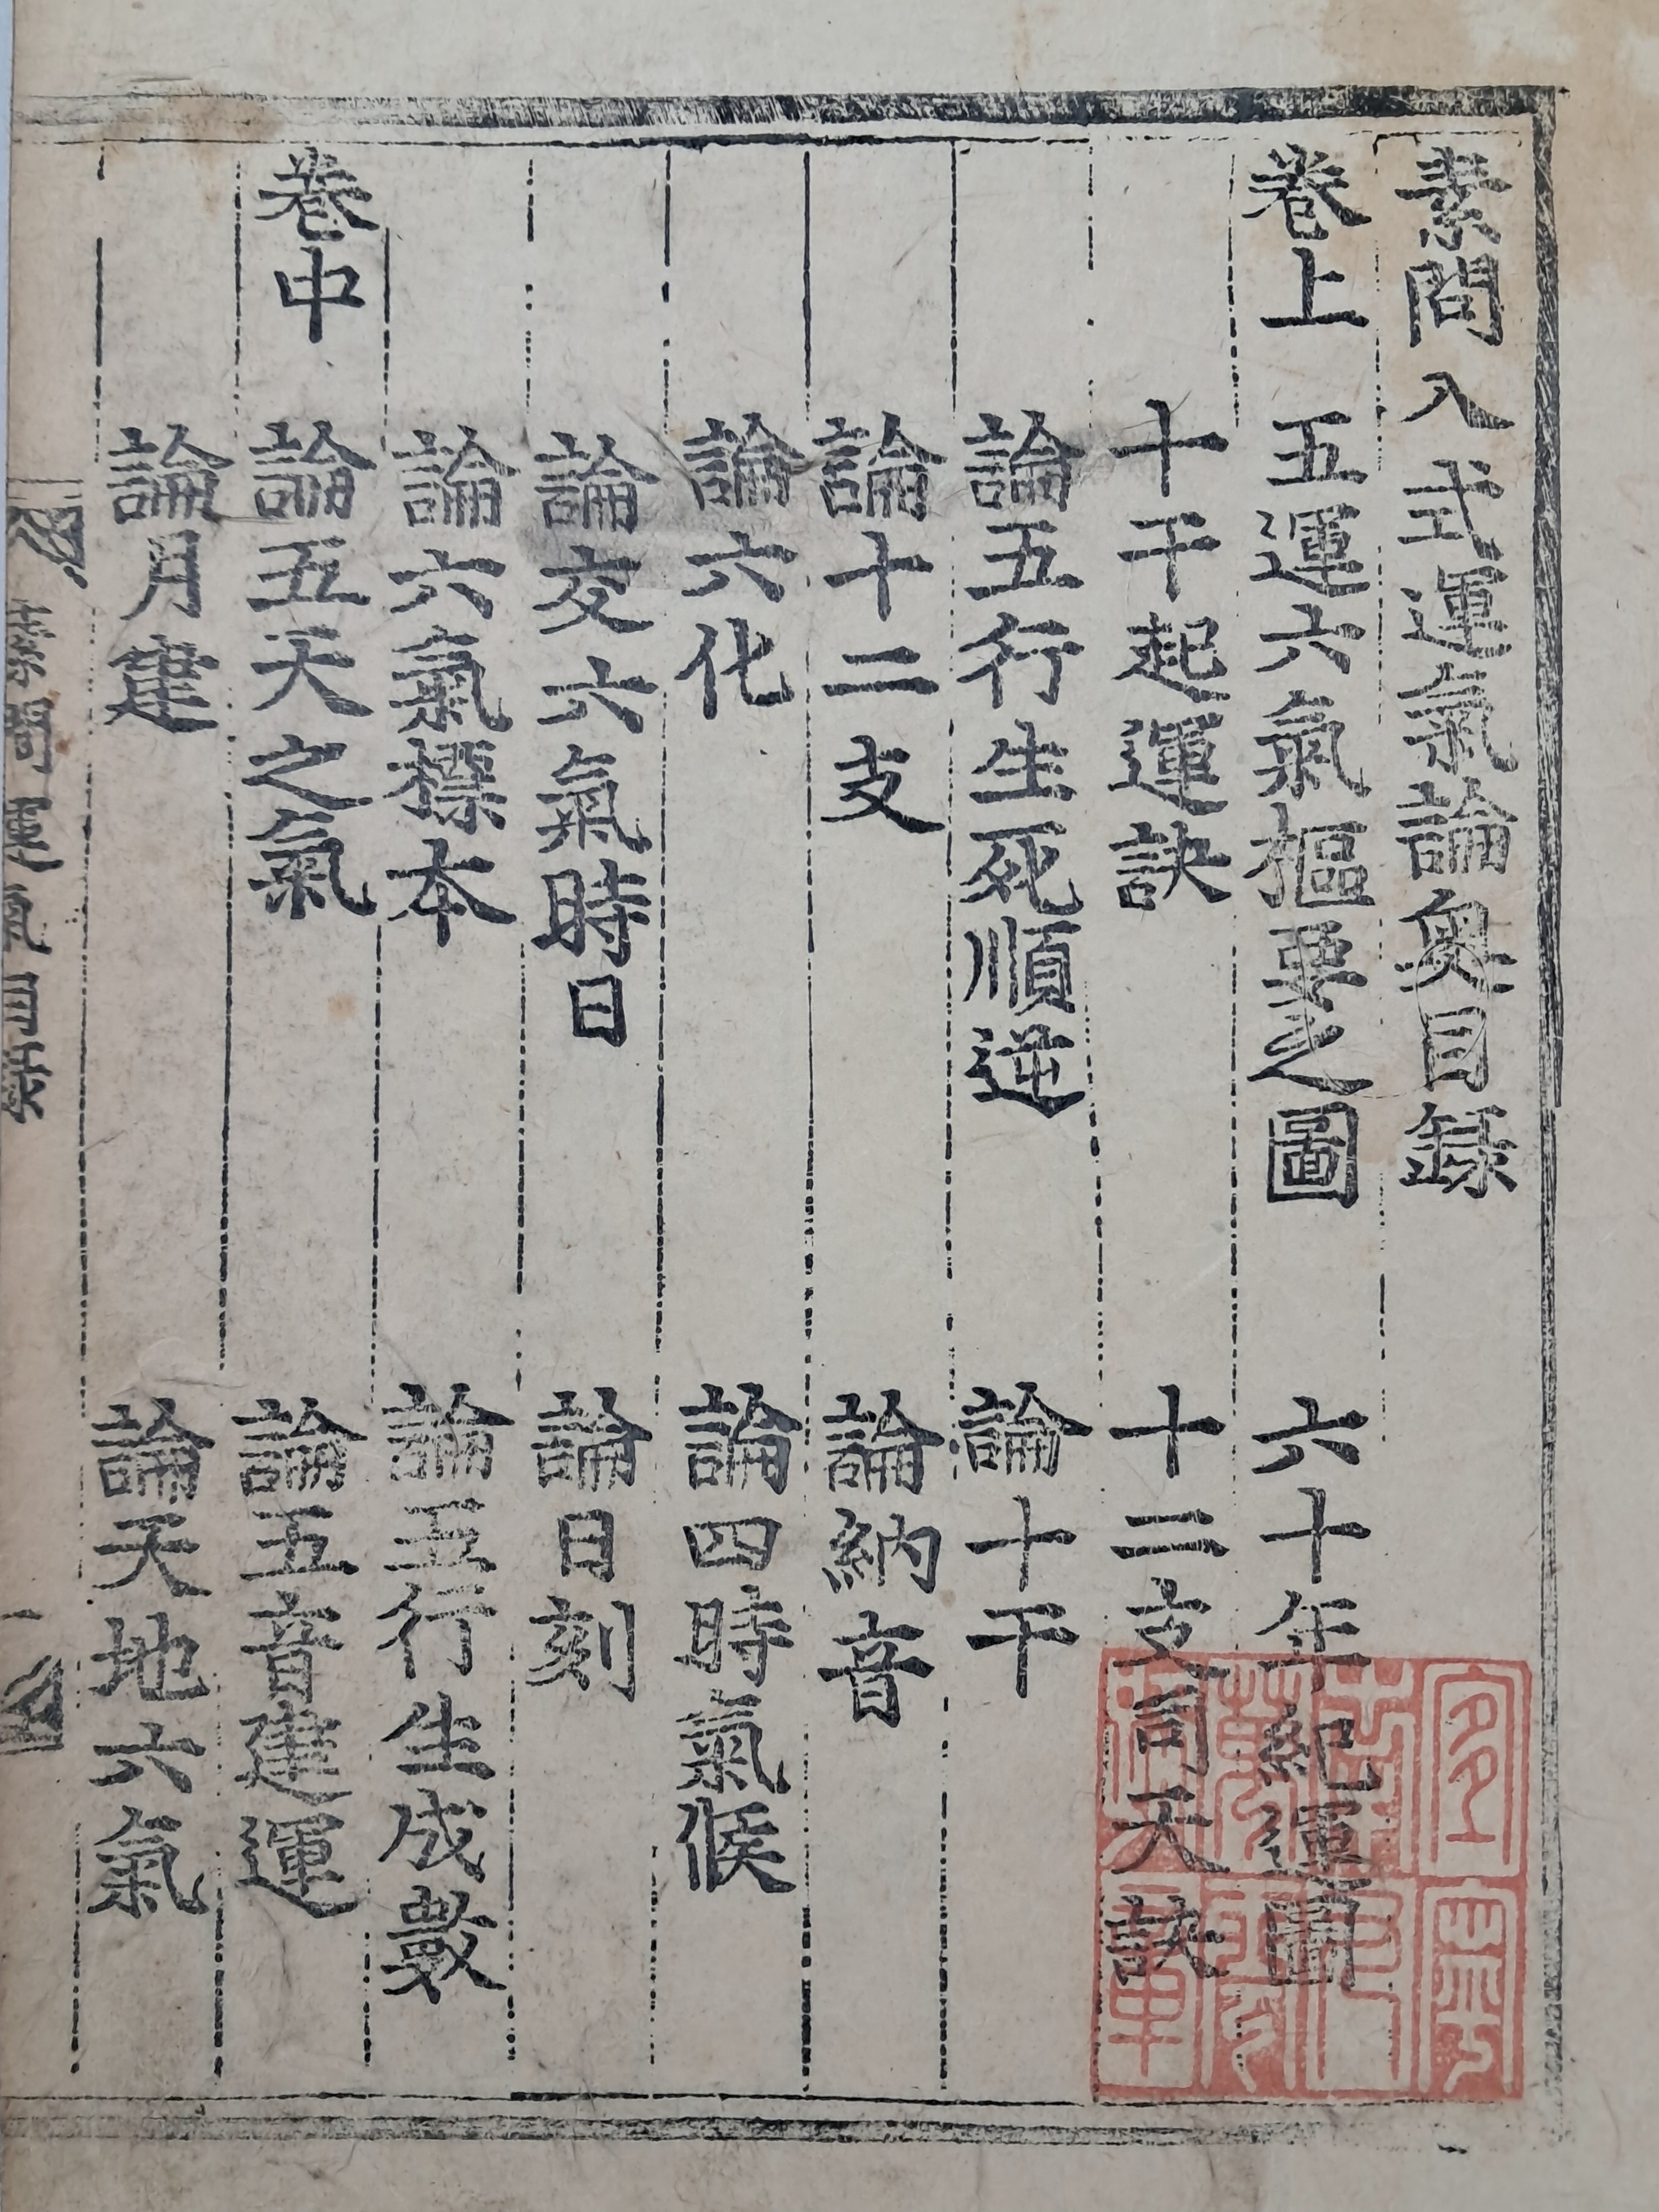 素問入式運氣論奧目錄
卷上 五運六氣樞要之圖 六十年紀運圖
十干起運訣 十二支司天訣
論五行生死順逆 論十干
論十二支 論納音
論六化 論四時氣候
論交六氣時日 論日刻
論六氣標本 論五行生成數
卷中 論五天之氣 論五音建運
論月建 論天地六氣